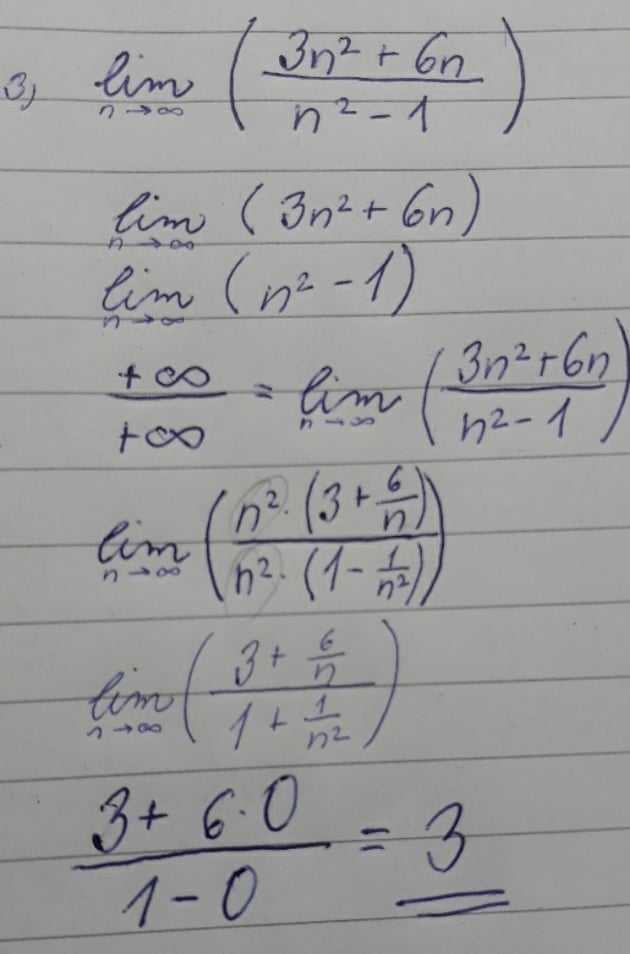 3) lim n→∞ ( (3n² + 6n) / (n² - 1) )
lim n→∞ ( 3n² + 6n )
lim n→∞ ( n² - 1 )
+∞ / +∞ = lim n→∞ ( (3n² + 6n) / (n² - 1) )
lim n→∞ ( (n² · (3 + 6/n)) / (n² · (1 - 1/n²)) )
lim n→∞ ( (3 + 6/n) / (1 + 1/n²) )
(3 + 6·0) / (1 - 0) = 3